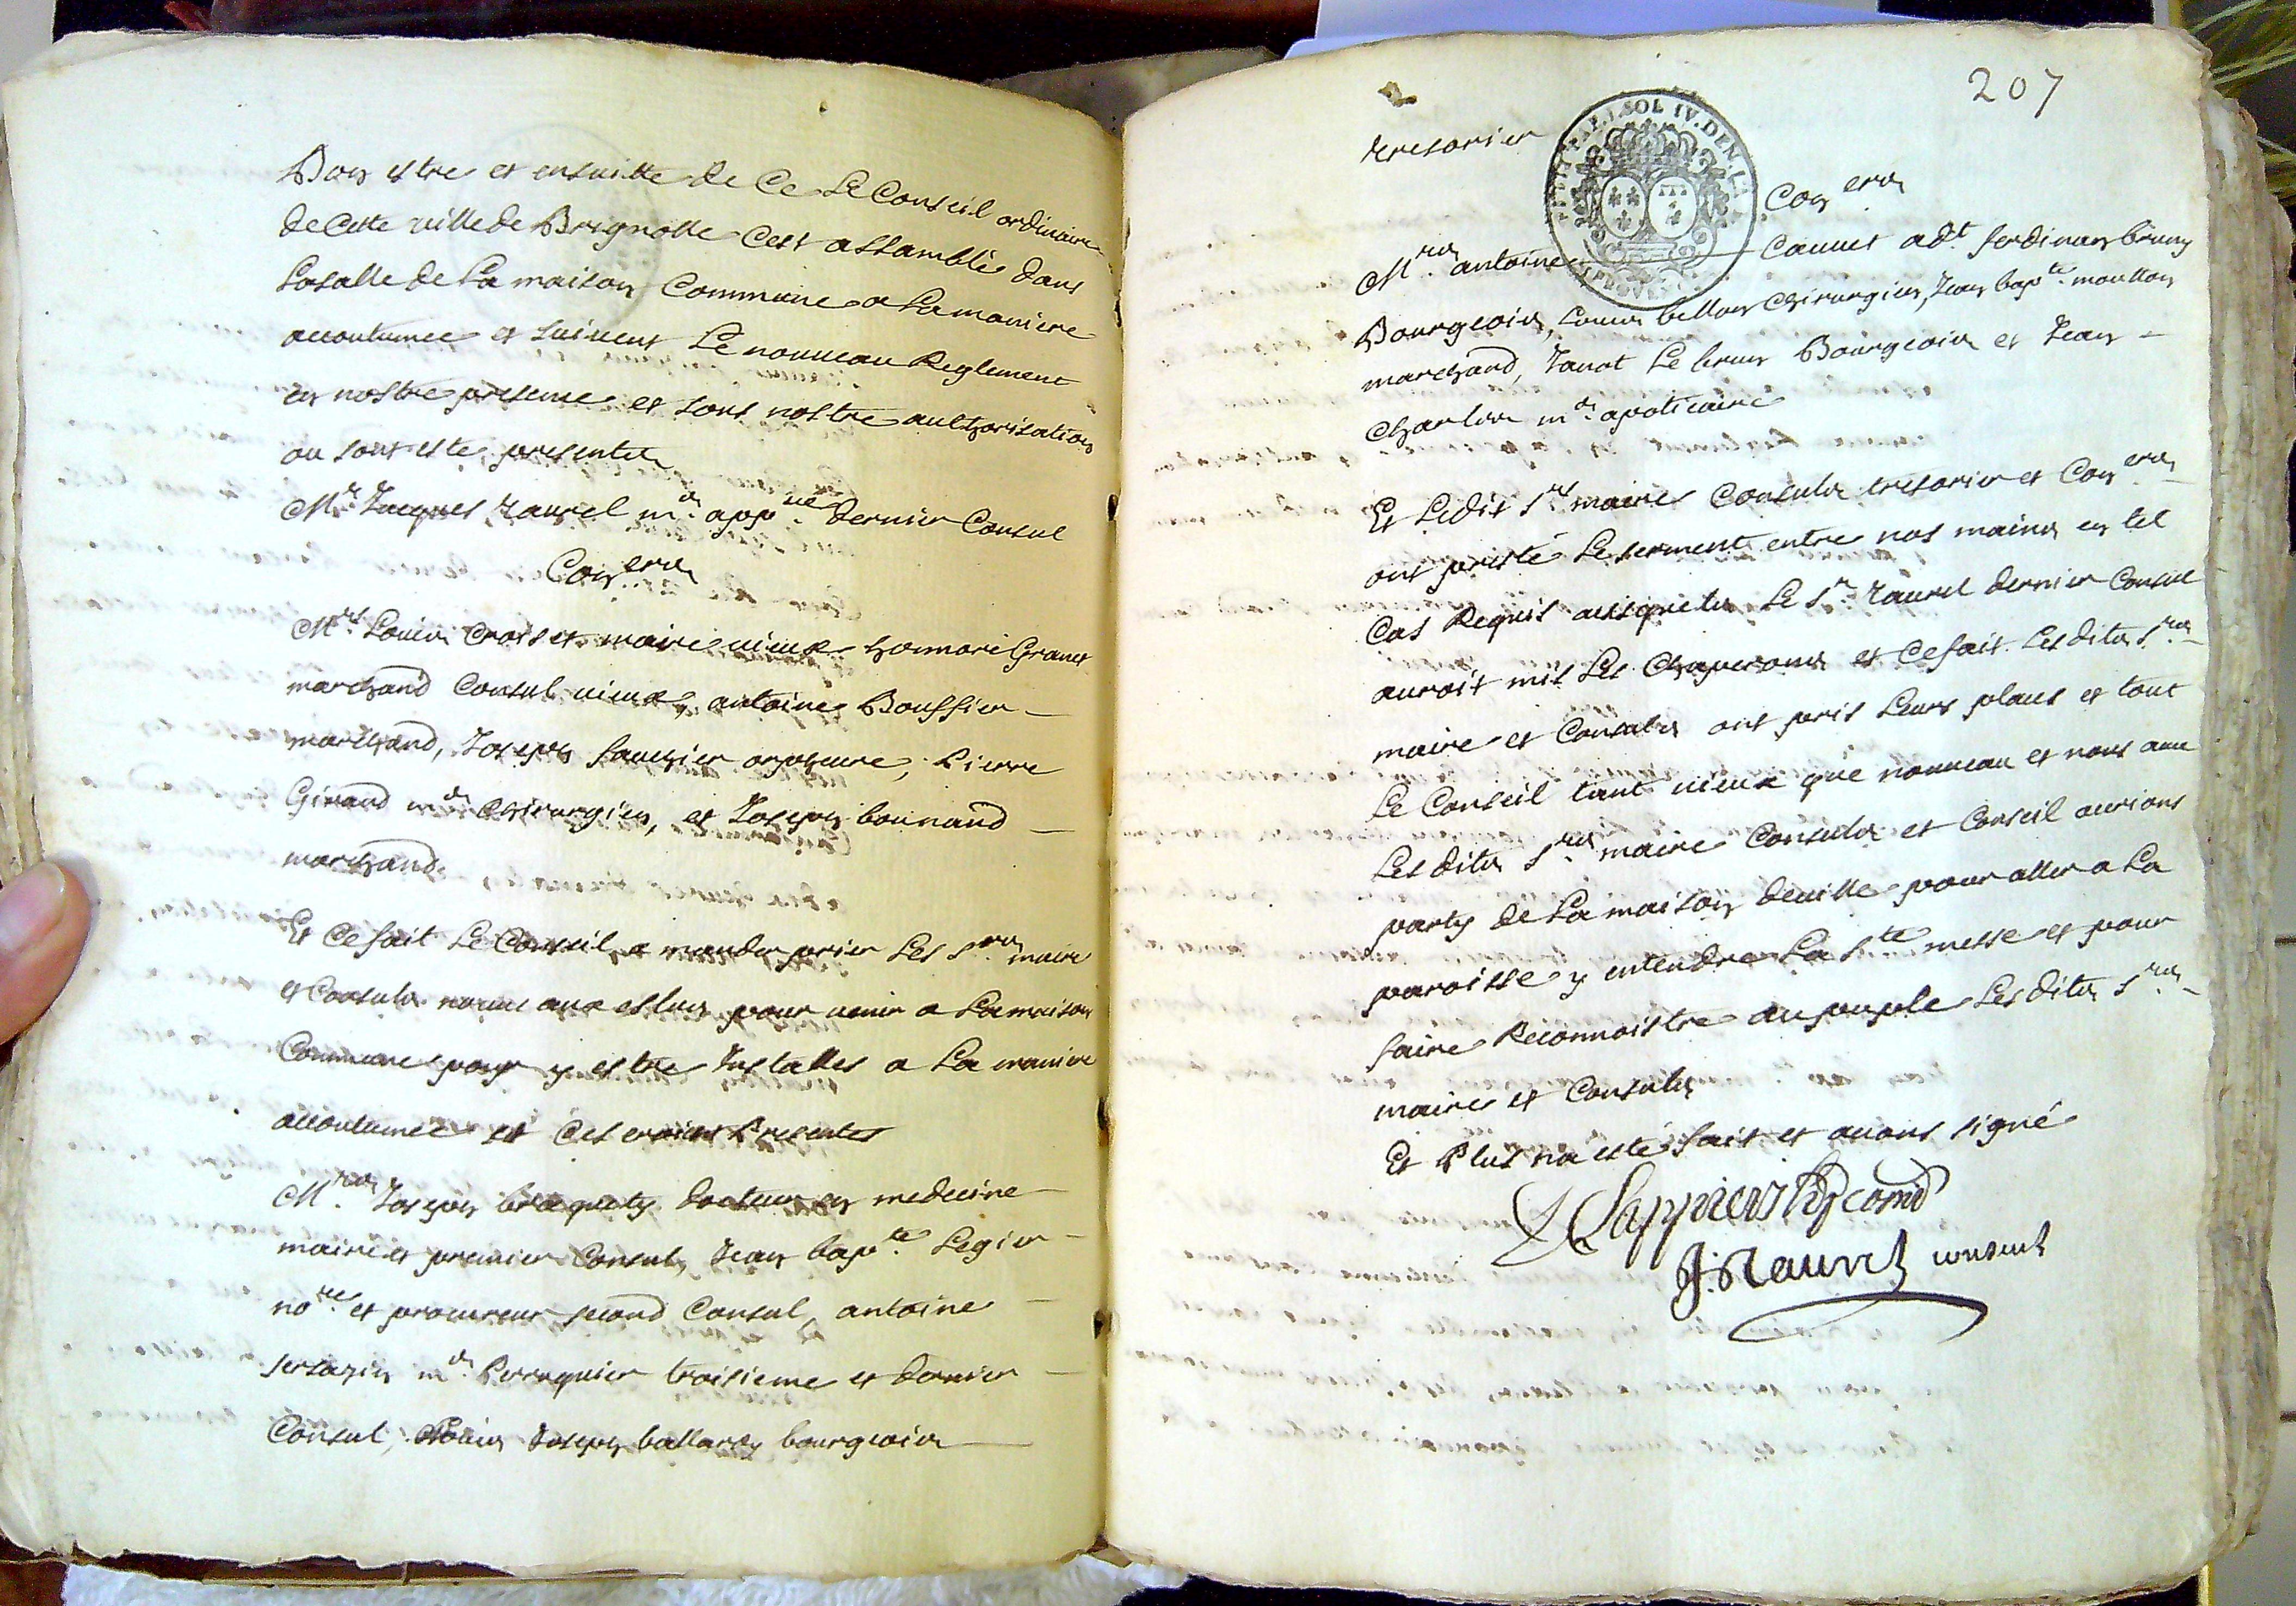 Bon estre et ensuitte de Ce Le Conseil ordinaire
de Cette ville de Brignolle Cest assamblés dans
La salle de La maison Commune a La maniere
accoutumee et suivent Le nouveau Reglement
en nostre presence et sous nostre authorisation
ou sont este presentes
Mr. Jacques raurel me. appre. dernier Consul
Coners
Mrs. Louis Crosset maire vieux honnoré Granet
marchand Consul vieux, antoine Bouffier
marchand, Joseph fauchier orphevre, Pierre
Giraud me. Chirurgien, et Joseph bounaud
marchand
Et Ce fait Le Conseil a mander prier Les Srs. maire
et Consuls nouveaux eslus pour venir a La maison
Commune pour y estre Installes a La maniere
accoutumee et Ces Presentes
Mrs. Joseph braquety docteur en medecine
maire et premier Consul, Jean bapte. Legier
nore. et procureur second Consul, antoine
me. Perruquier troisieme et dernier
Consul, Louis Joseph ballardy bourgeois
207
tresorier
SOL IV. DEN. LA
PROVEN
Coners
Mrs. antoine Cannet adt. ferdinan bruny
Bourgeois, Louis bellon Chirurgien, Jean bapte. moutton
marchand, Le brun Bourgeois et Jean
Charles me. apoticaire
Et Ledit Srs. maire Consuls tresorier et Coners.
ont presté Le serment entre nos mains en tel
Cas Requis ausquels Le Sr. raurel dernier Consul
auroit mis Les Chaperons et Ce fait Les dits Srs.
maire et Consuls ont pris Leurs places et tout
Le Conseil tant vieux que nouveau et nous avec
Les dits Srs. maire Consuls et Conseil aurions
party de La maison de ville pour aller a La
paroisse y entendre La Ste messe et pour
faire Reconnoistre au peuple Les dits Srs.
maire et Consuls
Et Plus na esté fait et avons signé
J. Raurel consul